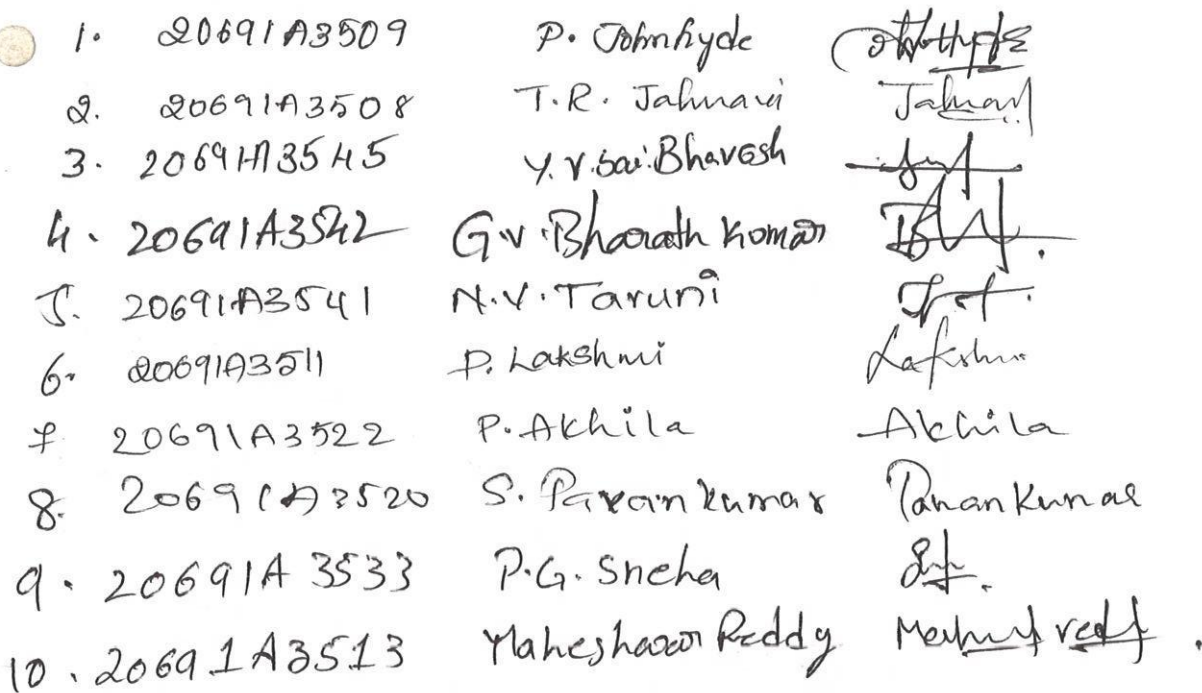 1. 20691A3509 P. Johnhyde
2. 20691A3508 T.R. Jahnavi Jahnavi
3. 20691A3545 Y.V.Sai.Bhavesh
4. 20691A3542 G.V.Bharath Kumar
5. 20691A3541 N.V.Taruni
6. 20691A3511 P. Lakshmi Lakshmi
7 20691A3522 P.Akhila Akhila
8. 20691A3520 S. Pavan kumar Pavan Kumar
9. 20691A3533 P.G. Sneha
10. 20691A3513 Maheshwar Reddy